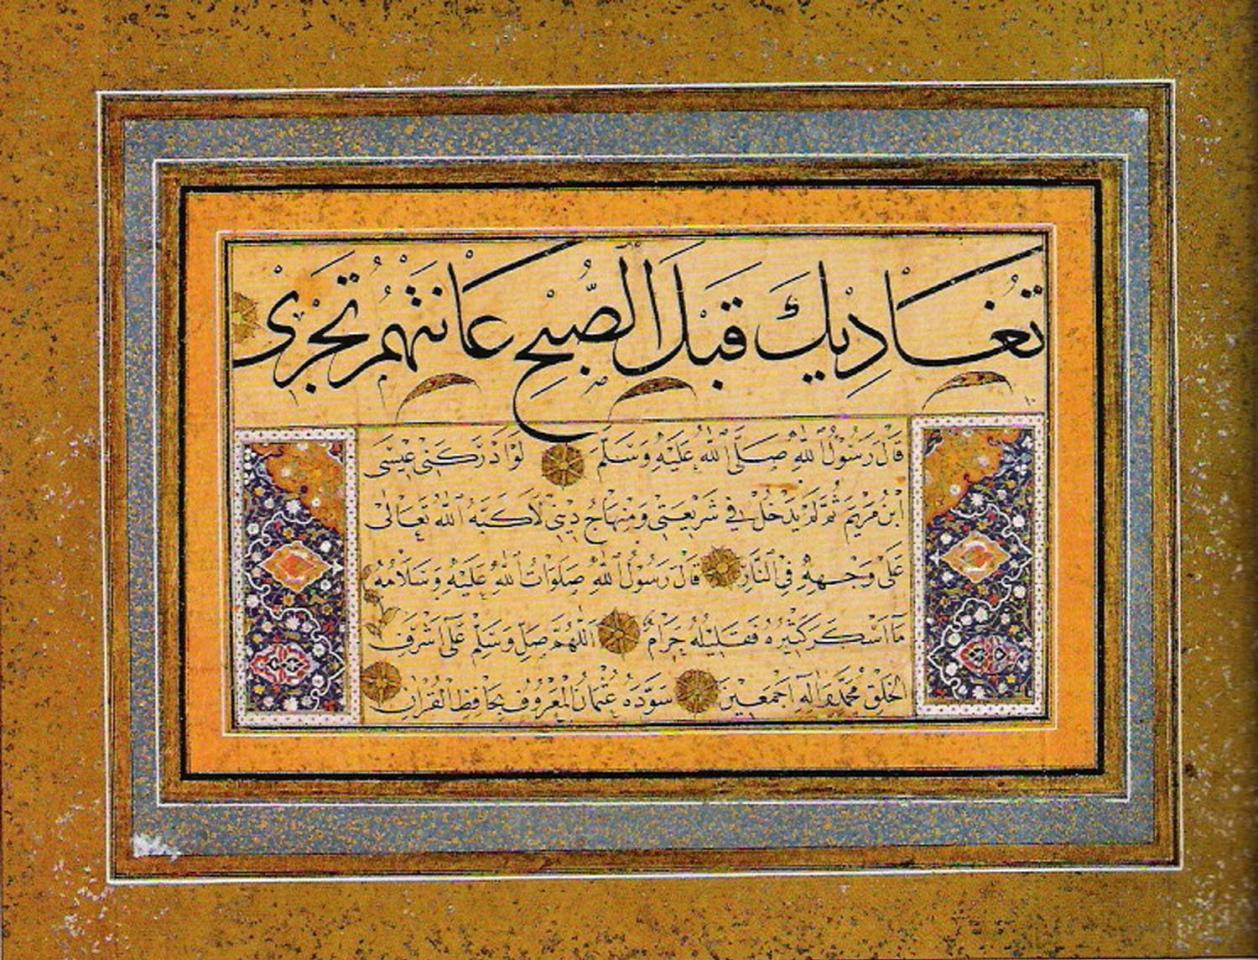 تُغَادِيكَ قَبْلَ الصُّبْحِ عَانَتُهُمْ تَجْرِى
قَالَ رَسُوْلُ اللهِ صَلَّى اللهُ عَلَيْهِ وَسَلَّمَ لَوْ اَدْرَكَنِى عِيسَى
ابْنُ مَرْيَمَ ثُمَّ لَمْ يَدْخُلْ فِي شَرِيعَتِى وَمِنْهَاجُ دِينِى لَاَكَبَّهُ اللهُ تَعَالَى
عَلَى وَجْهِهِ فِى النَّارِ قَالَ رَسُوْلُ اللهِ صَلَوَاتُ اللهِ عَلَيْهِ وَسَلَامُهُ
مَا اَسْكَرَ كَثِيْرُهُ فَقَلِيْلُهُ حَرَامٌ اَللّٰهُمَّ صَلِّ وَسَلِّمْ عَلَى اَشْرَفِ
الْخَلْقِ مُحَمَّدٍ وَاٰلِهِ اَجْمَعِيْنَ سَوَّدَهُ عُثْمَانُ الْمَعْرُوفُ بِحَافِظِ الْقُرْاٰنِ